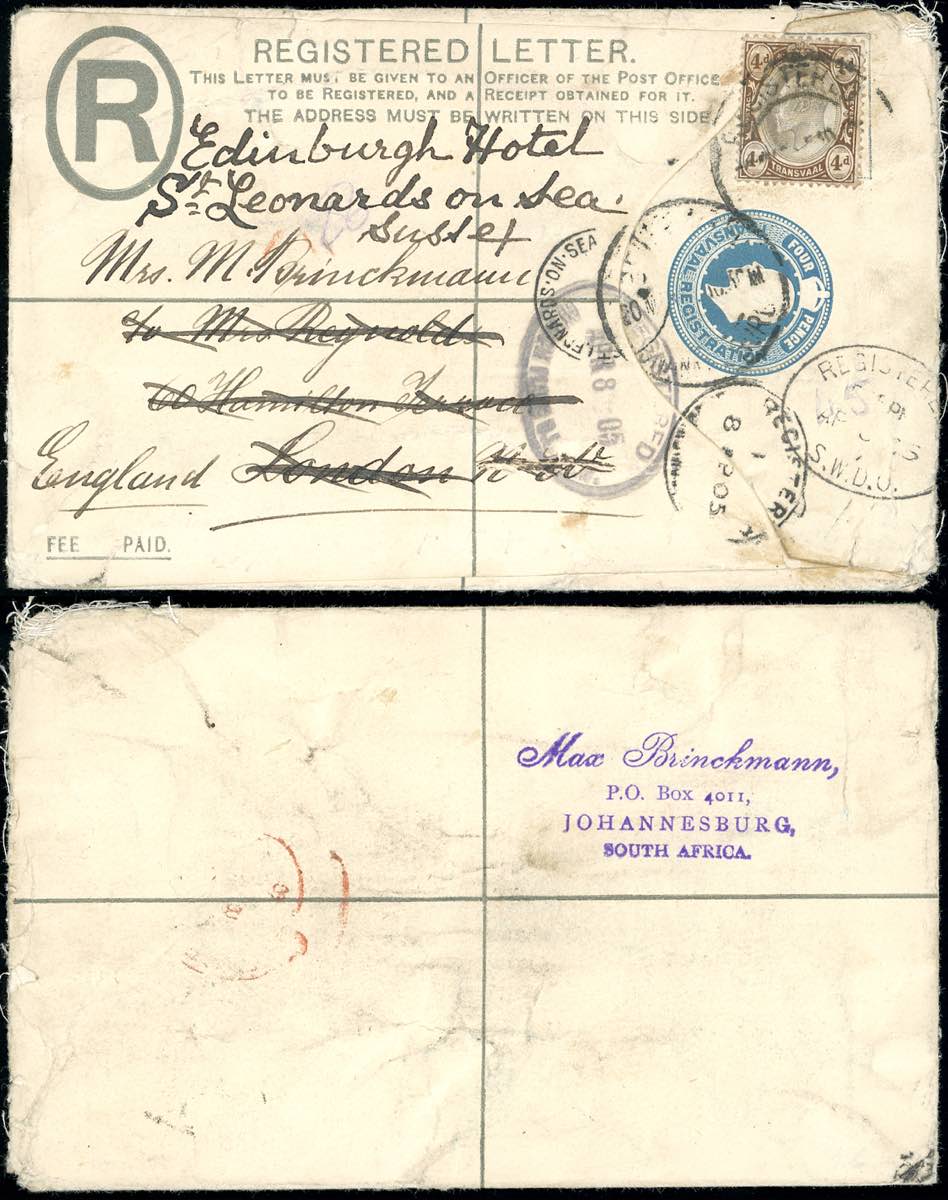 REGISTERED LETTER.
THIS LETTER MUST BE GIVEN TO AN OFFICER OF THE POST OFFICE
TO BE REGISTERED, AND A RECEIPT OBTAINED FOR IT.
THE ADDRESS MUST BE WRITTEN ON THIS SIDE.
R
4d 4d
4d TRANSVAAL 4d
Edinburgh Hotel
St Leonards on Sea.
Sussex
Mrs. M. Brinckmann
to Mrs Reynolds
Hamilton Terrace
England London N.W.
FOUR PENCE
TRANSVAAL REGISTRATION
ST LEONARDS·ON·SEA
REGISTERED
AP 8 05
REGISTER
8 AP 05
REGISTERED
S.W.D.O.
45
FEE PAID.
Max Brinckmann,
P.O. Box 4011,
JOHANNESBURG,
SOUTH AFRICA.